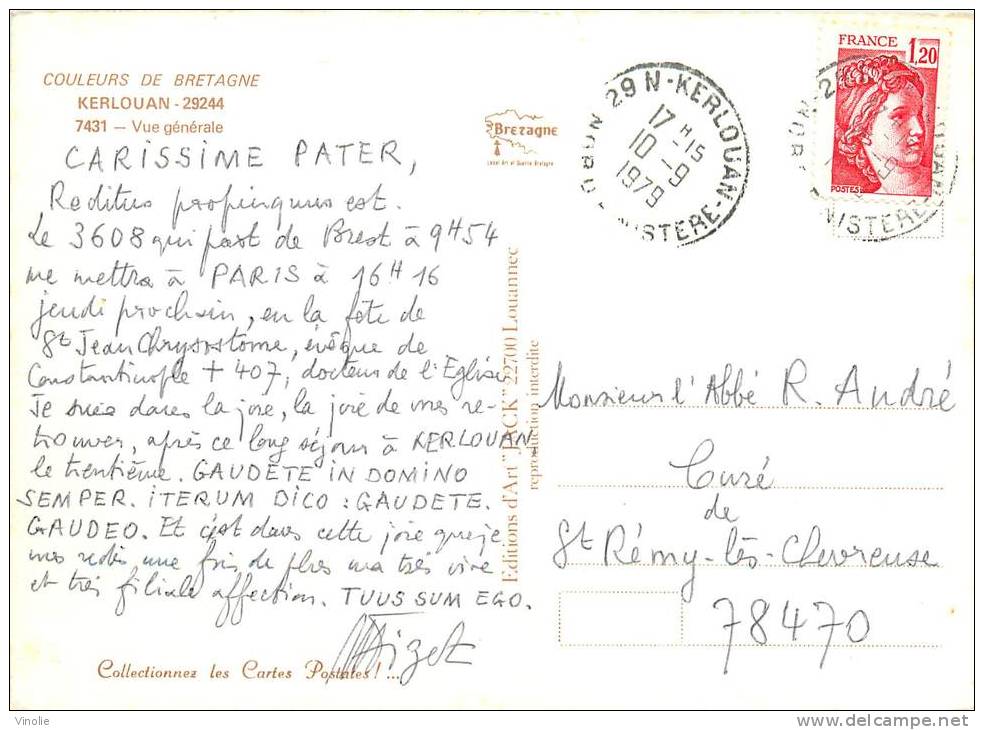 COULEURS DE BRETAGNE
KERLOUAN - 29244
7431 — Vue générale
CARISSIME PATER,
Reditus propinquus est.
Le 3608 qui part de Brest à 9H54
me mettra à PARIS à 16H16
jeudi prochain, en la fête de
St Jean Chrysostome, évêque de
Constantinople + 407, docteur de l'Eglise.
Je suis dans la joie, la joie de vous re-
trouver, après ce long séjour à KERLOUAN,
le trentième. GAUDETE IN DOMINO
SEMPER. ITERUM DICO : GAUDETE.
GAUDEO. Et c'est dans cette joie que je
vous redis une fois de plus ma très vive
et très filiale affection. TUUS SUM EGO.
Collectionnez les Cartes Postales !...
Bretagne
Editions d'Art "JACK" 22700 Louannec
reproduction interdite
29 N-KERLOUAN-
17 H 15
10 -9
1979
NISTERE
FRANCE 1,20
POSTES
Monsieur l'Abbé R. André
Curé
de
St Rémy-lès-Chevreuse
78470
Vinolie
www.delcampe.net